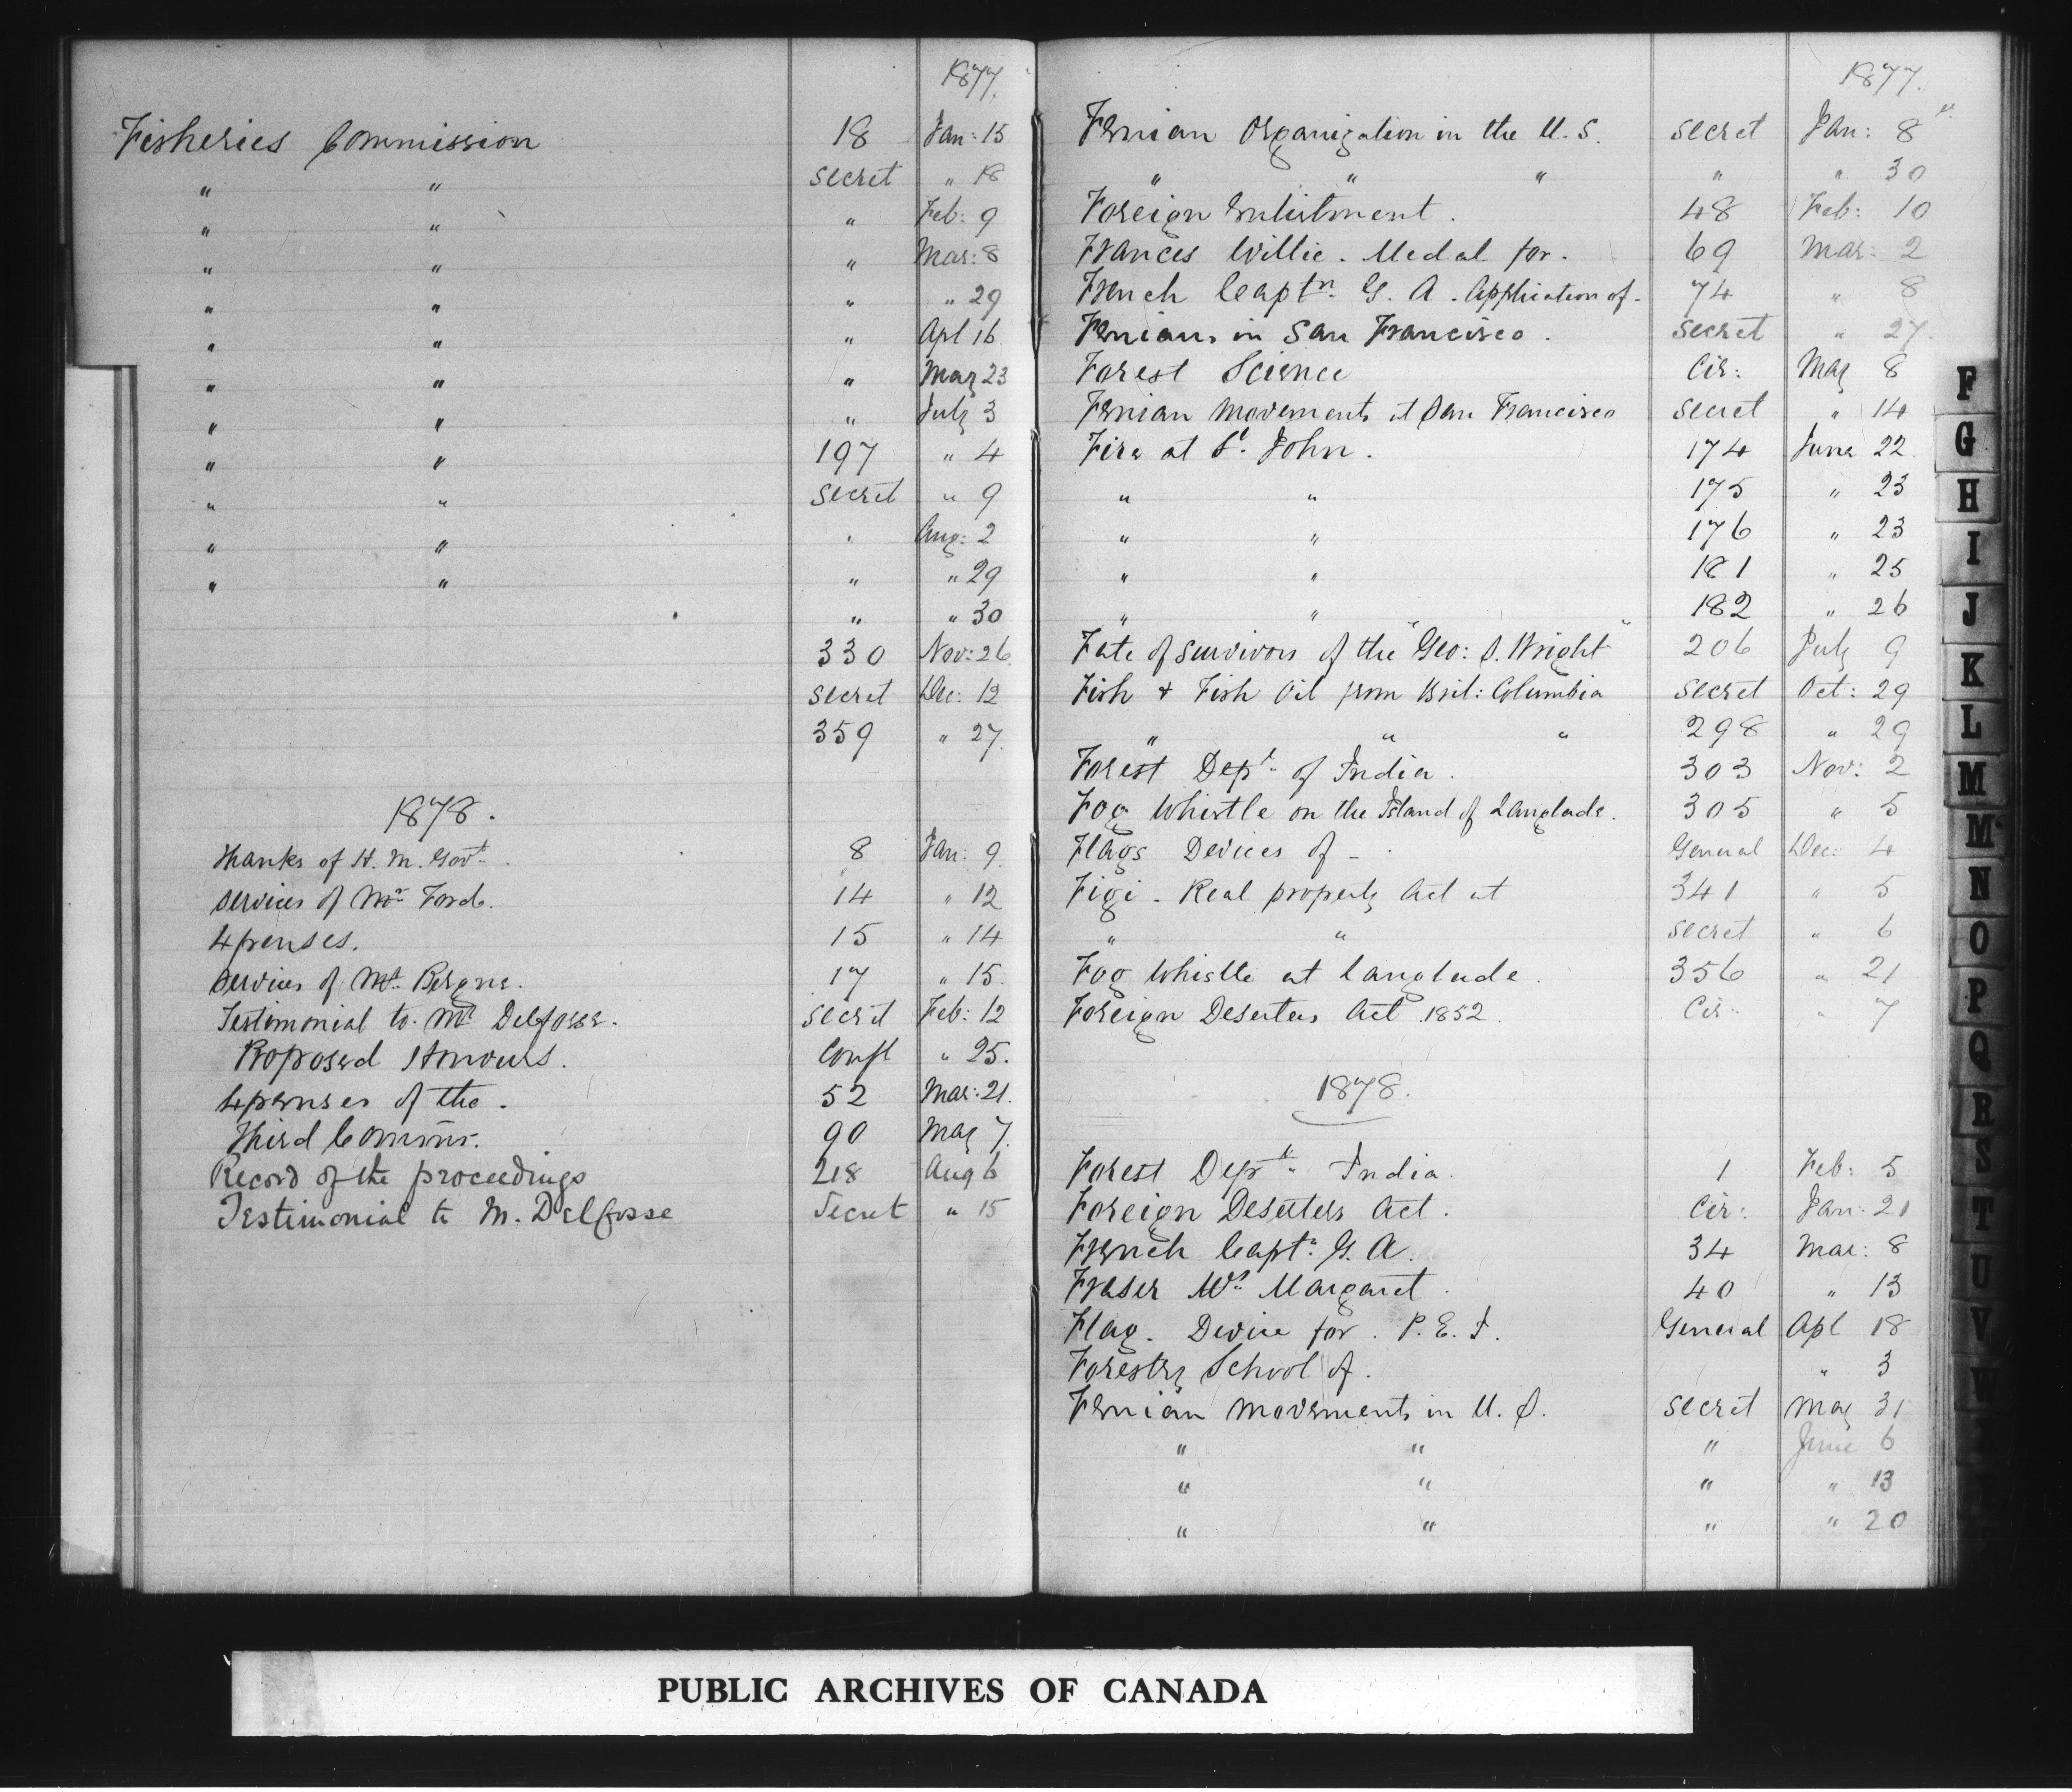 1877.
Fisheries Commission 18 Jan: 15
" " secret " 18
" " " Feb: 9
" " " Mar: 8
" " " " 29
" " " Apl 16
" " " May 23
" " " July 3
" " 197 " 4
" " secret " 9
" " " Aug: 2
" " " " 29
" " 30
330 Nov: 26
secret Dec: 12
359 " 27.
1878.
Thanks of H. M. Govt. 8 Jan: 9.
services of Mr Ford. 14 " 12
Expenses. 15 " 14
services of Mr. Bergne. 17 " 15.
Testimonial to Mr Delfosse. secret Feb: 12
Proposed Honours. Confl " 25.
Expenses of the. 52 Mar: 21.
Third Commr. 90 May 7.
Record of the proceedings 218 Aug 6
Testimonial to M. Delfosse Secret " 15
1877.
Fenian Organization in the U. S. secret Jan: 8
" " " " " 30
Foreign Enlistment. 48 Feb: 10
Frances Willie. Medal for. 69 Mar: 2
French Captn. G. A. Application of. 74 " 8
Fenians in San Francisco. secret " 27.
Forest Science Cir: May 8
Fenian Movements at San Francisco secret " 14
Fire at St. John. 174 June 22.
" " 175 " 23
" " 176 " 23
" " 181 " 25
" " 182 " 26
Fate of survivors of the "Geo: S. Wright" 206 July 9
Fish & Fish Oil from Brit: Columbia secret Oct: 29
" " " 298 " 29
Forest Dept. of India. 303 Nov: 2
Fog Whistle on the Island of Langlade. 305 " 5
Flags Devices of - General Dec: 4
Figi - Real property Act at 341 " 5
" " secret " 6
Fog Whistle at Langlade. 356 " 21
Foreign Deserters Act 1852. Cir: " 7
1878.
Forest Dept. India. 1 Feb: 5
Foreign Deserters Act. Cir: Jan: 21
French Captn. G. A. 34 Mar: 8
Fraser Mrs. Margaret. 40 " 13
Flag. Device for. P. E. I. General Apl 18
Forestry School of. " 3
Fenian Movements in U. S. secret May 31
" " " June 6
" " " " 13
" " " " 20
F
G
H
I
J
K
L
M
Mc
N
O
P
Q
R
S
T
U
V
W
PUBLIC ARCHIVES OF CANADA